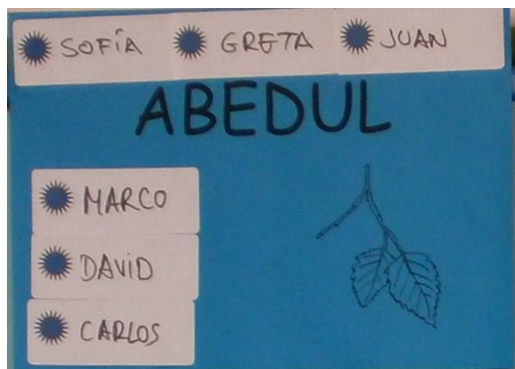 SOFÍA GRETA JUAN
ABEDUL
MARCO
DAVID
CARLOS